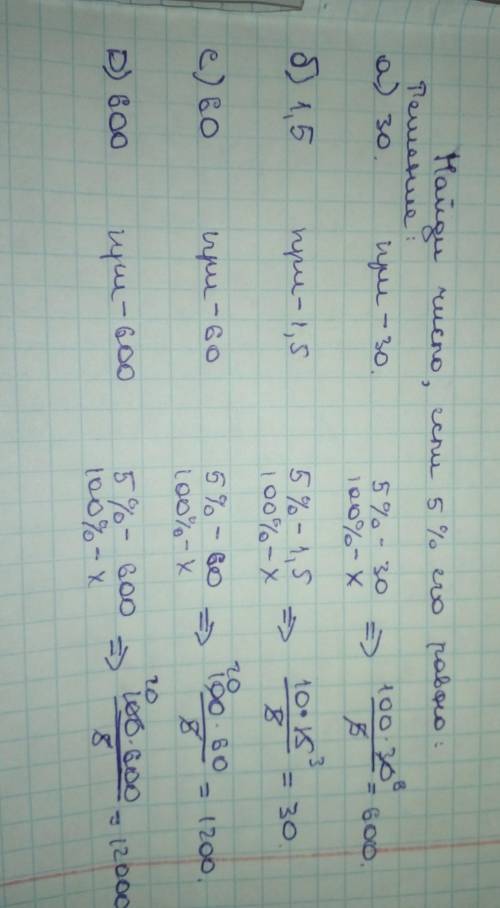 Найди число, если 5% его равно:
Решение:
а) 30. при - 30. 5% - 30
100% - х => 100 · 30 6 / 5 = 600.
б) 1,5 при - 1,5 5% - 1,5
100% - х => 10 · 15 3 / 5 = 30.
с) 60 при - 60 5% - 60
100% - х => 20 100 · 60 / 5 = 1200.
D) 600 при - 600 5% - 600
100% - х => 20 100 · 600 / 5 = 12000